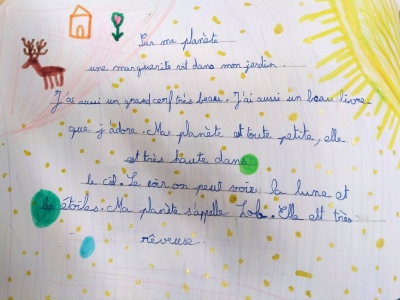 Sur ma planète
une marguerite rit dans mon jardin.
J'ai aussi un grand cerf très beau. J'ai aussi un beau livre
que j'adore. Ma planète est toute petite, elle
est très haute dans
le ciel. Le soir on peut voir la lune et
les étoiles. Ma planète s'appelle Lola. Elle est très
rêveuse.